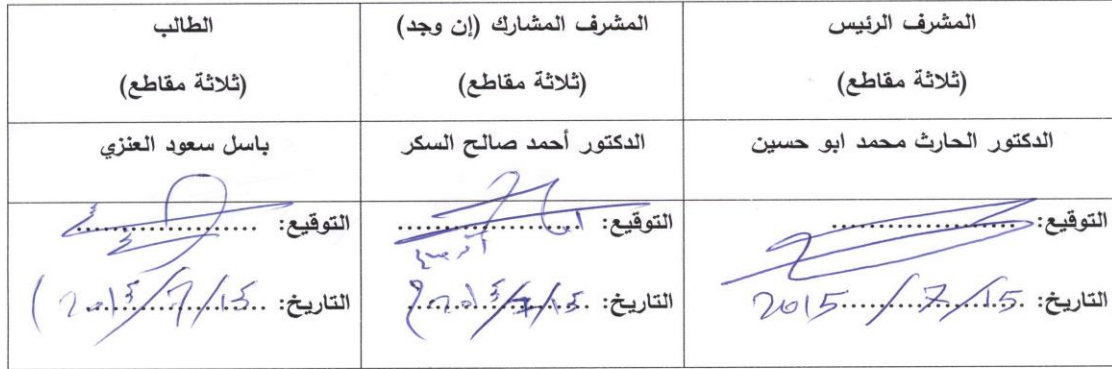 المشرف الرئيس
(ثلاثة مقاطع)
المشرف المشارك (إن وجد)
(ثلاثة مقاطع)
الطالب
(ثلاثة مقاطع)
الدكتور الحارث محمد ابو حسين
الدكتور أحمد صالح السكر
باسل سعود العنزي
التوقيع: .....................
التوقيع: .....................
التوقيع: .....................
التاريخ: 15/7/2015
التاريخ: 15/7/2015
التاريخ: 15/7/2015